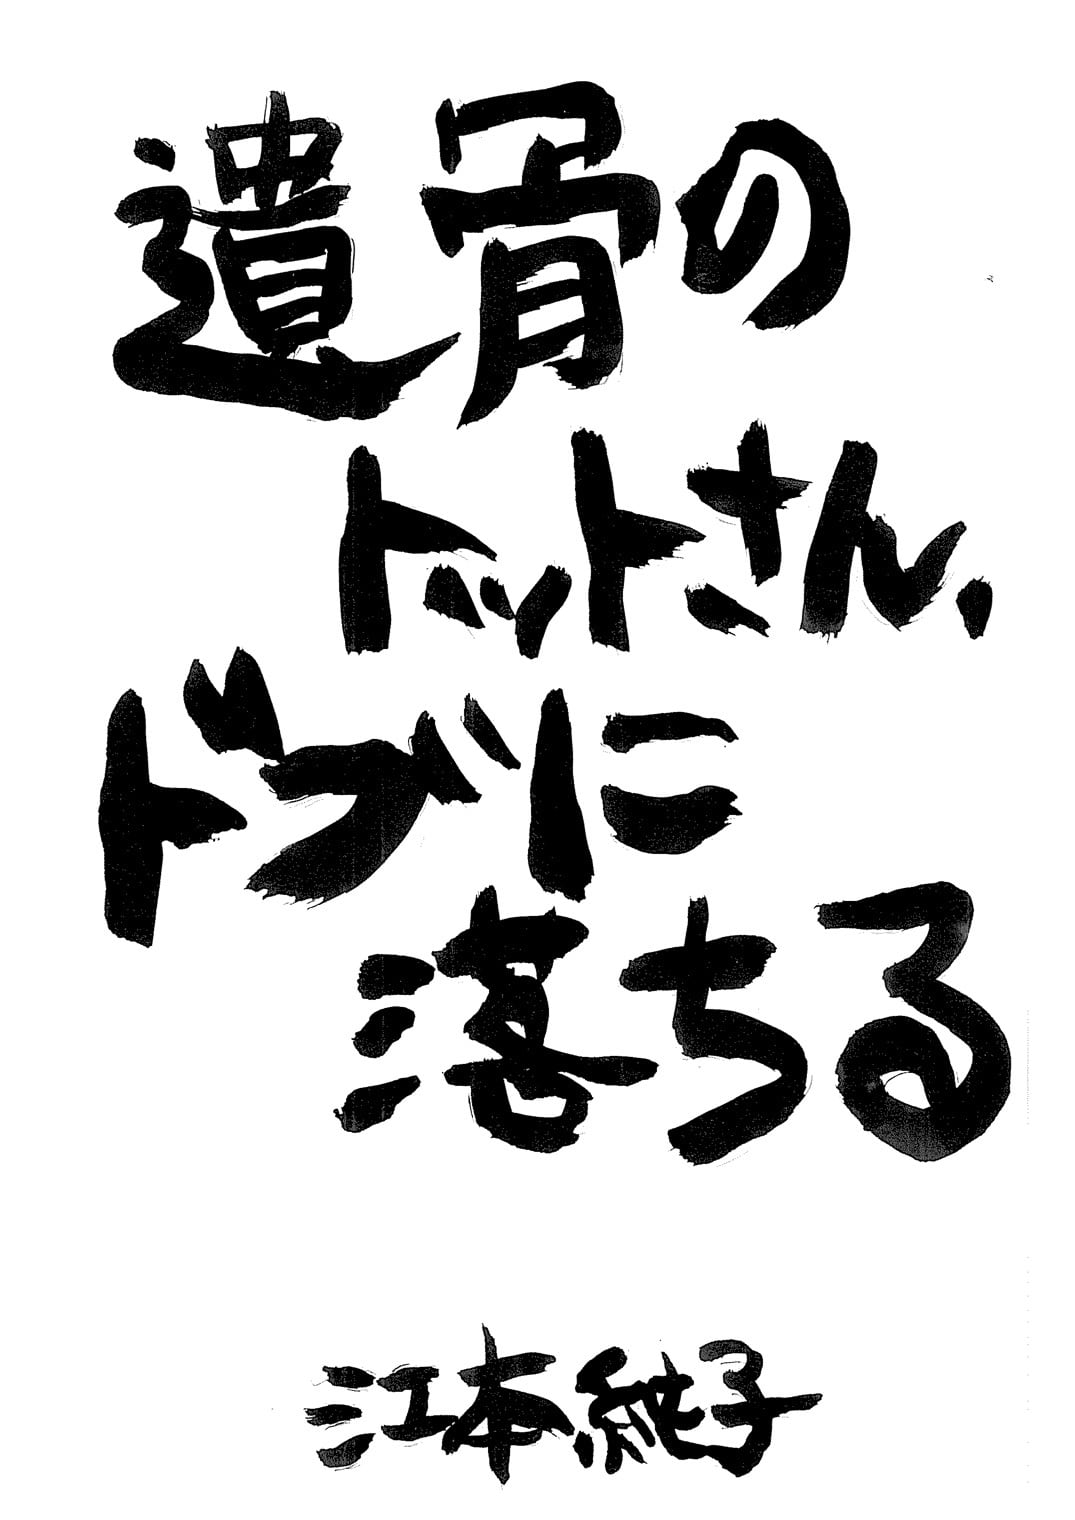 遺骨の
トットさん、
ドブに
落ちる
江本純子